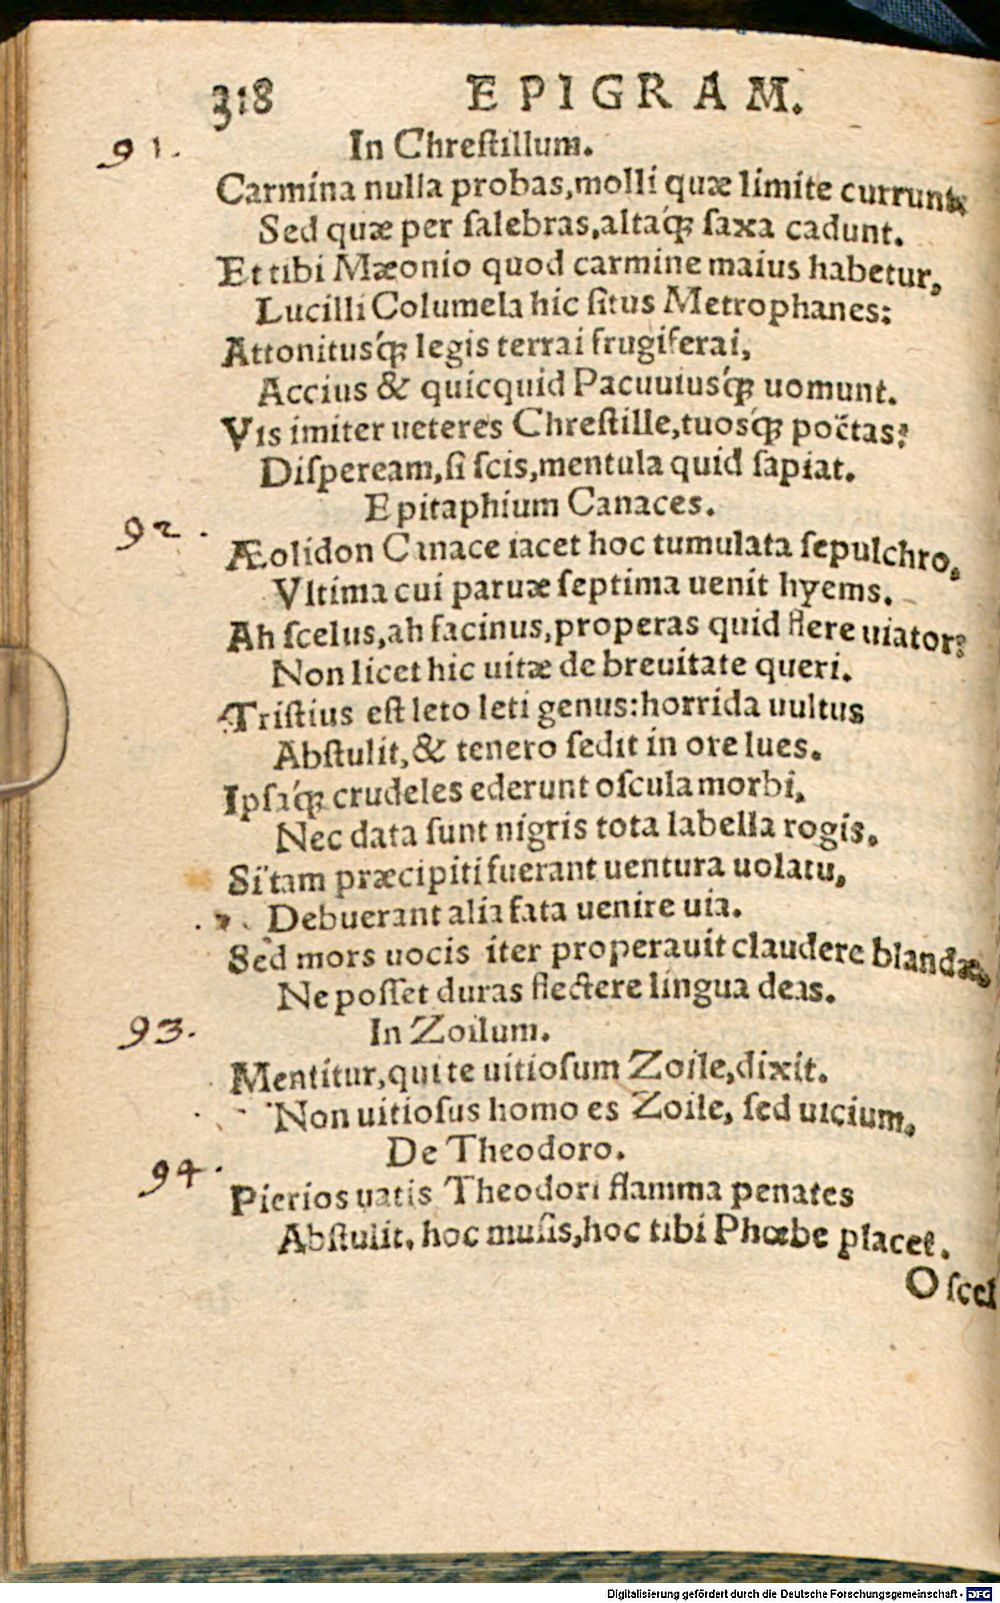 318 EPIGRAM.
91. In Chreſtillum.
Carmina nulla probas,molli quæ limite currunt,
Sed quæ per ſalebras,altaq́; ſaxa cadunt.
Et tibi Mæonio quod carmine maius habetur,
Lucilli Columela hic ſitus Metrophanes:
Attonitusq́; legis terrai frugiferai,
Accius & quicquid Pacuuiusq́; uomunt.
Vis imiter ueteres Chreſtille,tuosq́; poëtas?
Diſpeream,ſi ſcis,mentula quid ſapiat.
92. Epitaphium Canaces.
Æolidon Canace iacet hoc tumulata ſepulchro,
Vltima cui paruæ ſeptima uenit hyems.
Ah ſcelus,ah facinus,properas quid flere uiator?
Non licet hic uitæ de breuitate queri.
Triſtius eſt leto leti genus:horrida uultus
Abſtulit,& tenero ſedit in ore lues.
Ipſaq́; crudeles ederunt oſcula morbi,
Nec data ſunt nigris tota labella rogis.
Si tam præcipiti fuerant uentura uolatu,
Debuerant alia fata uenire uia.
Sed mors uocis iter properauit claudere blandæ,
Ne poſſet duras flectere lingua deas.
93. In Zoilum.
Mentitur,qui te uitioſum Zoile,dixit.
Non uitioſus homo es Zoile, ſed uicium.
94. De Theodoro.
Pierios uatis Theodori flamma penates
Abſtulit. hoc muſis,hoc tibi Phœbe placet.
O ſcel
Digitalisierung gefördert durch die Deutsche Forschungsgemeinschaft - DFG